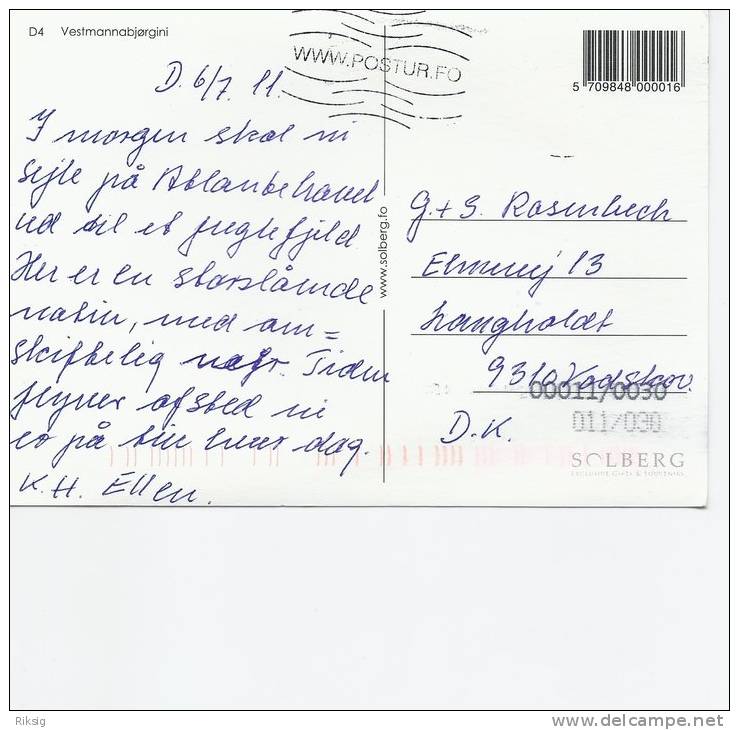 D4 Vestmannabjørgini
WWW.POSTUR.FO
5 709848 000016
D. 6/7. 11.
I morgen skal vi
sejle på Atlanterhavet
ud til et fuglefjeld
Her er en storslåede
natur, med om=
skiftelig vejr. Tiden
flyver afsted vi
er på tur hver dag.
K.H. Ellen.
www.solberg.fo
G.+S. Rosenbech
Elmevej 13
Langholdt
9310 Vodskov.
D.K.
00011/0030
011/030
SOLBERG
EXCLUSIVE GIFTS & SOUVENIRS
Riksig
www.delcampe.net